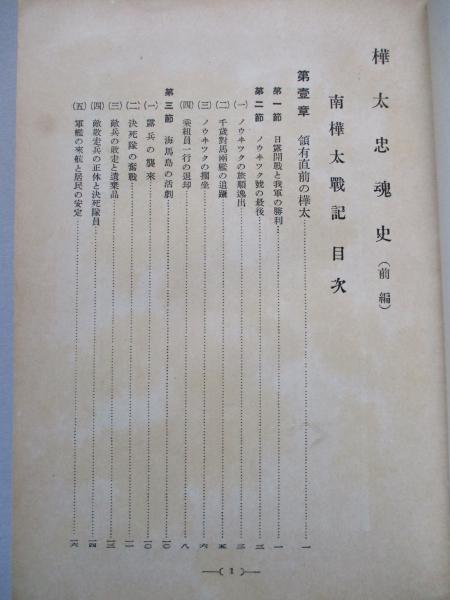 樺太忠魂史（前編）
南樺太戰記 目次
第壹章 領有直前の樺太……一
第一節 日露開戰と我軍の勝利……一
第二節 ノウヰツク號の最後……三
（一）ノウヰツクの旅順逸出……三
（二）千歳對馬兩艦の追躡……五
（三）ノウヰツクの擱坐……六
（四）乘組員一行の退却……八
第三節 海馬島の活劇……一〇
（一）露兵の襲來……一〇
（二）決死隊の奮戰……一一
（三）敵兵の敗走と遺棄品……一三
（四）敵敗走兵の正体と決死隊員……一四
（五）軍艦の來航と居民の安定……一六
—( 1 )—